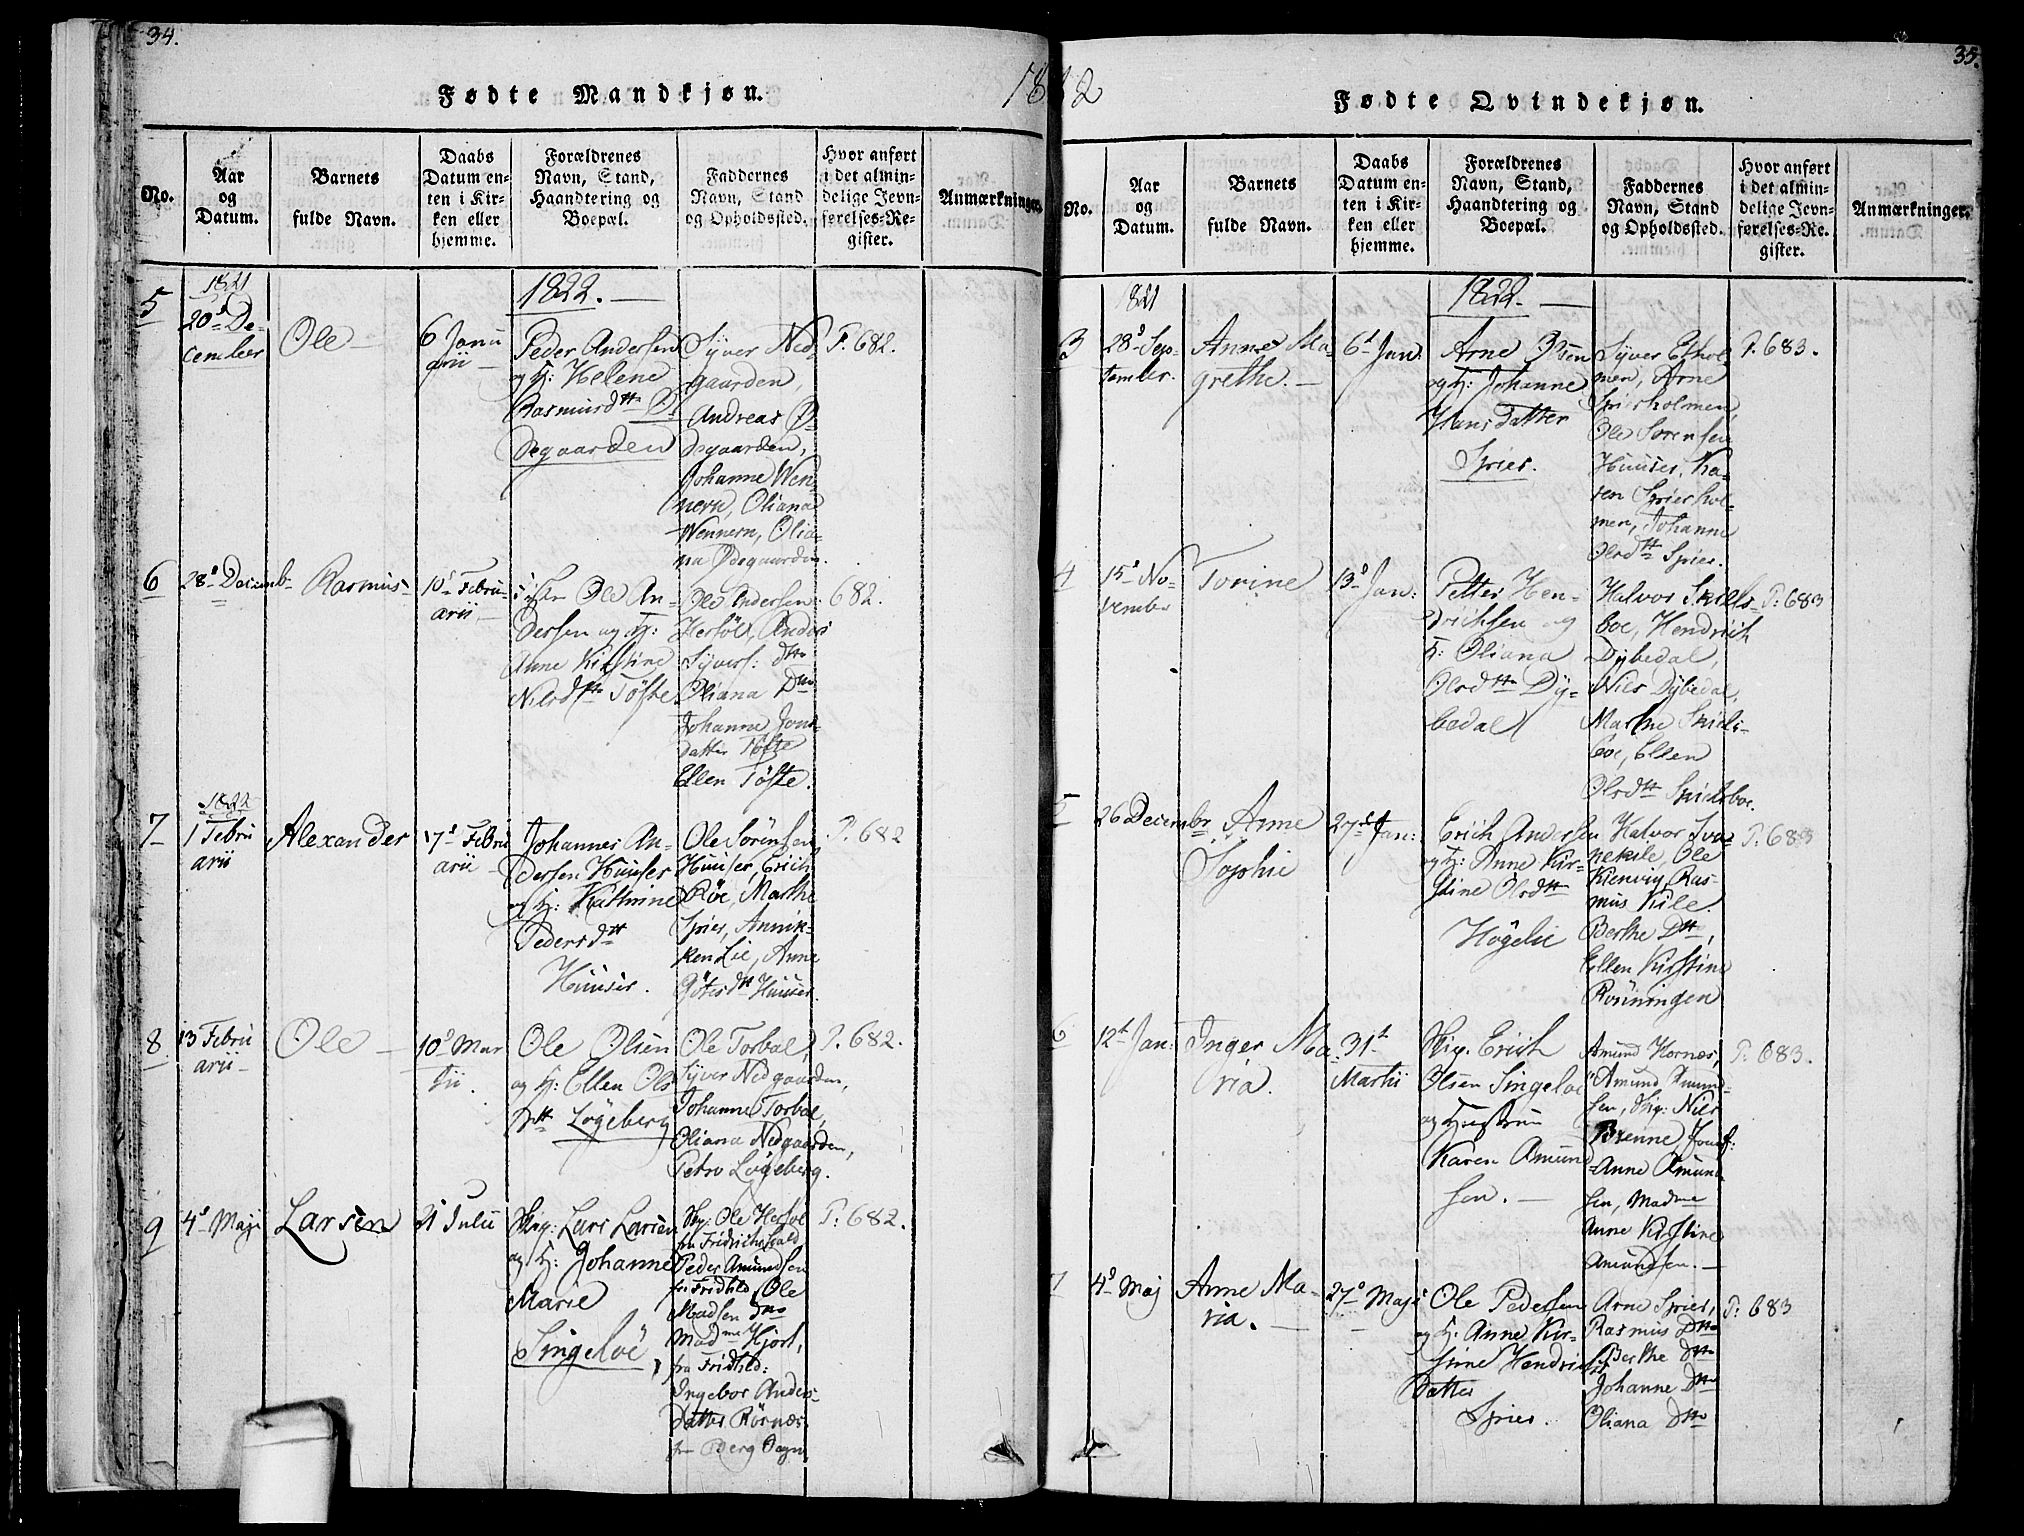 34.
Fødte Mandkjøn.
1822
No.
Aar
og
Datum.
Barnets
fulde Navn.
Daabs
Datum en-
ten i Kir-
ken eller
hjemme.
Forældrenes
Navn, Stand,
Haandtering og
Boepæl.
Faddernes
Navn, Stand
og Opholdssted.
Hvor anført
i det almin-
delige Jevn-
førelses-Re-
gister.
Anmærkninger.
1822.
5
1821
20d De-
cember
Ole
6 Janu
arii
Peder Andersen
og H: Helene
Rasmusdtt Ø
degaarden
Syver Ned
gaarden,
Andreas Ø-
degaarden,
Johanne Wen-
nern, Oliana
Wennern, Olia-
na Ødegaarden.
P. 682.
6
28d Decemb
Rasmus
10d Febru-
arii
Ole An-
dersen og H:
Anne Kirstine
Nilsdtt Töfte
Ole Andersen
Herföl, Anders
Syvers: dto
Oliana Dto
Johanne Jons
datter Töfte
Ellen Töfte.
682.
7
1822
1 Febru
arii
Alexander
17d Febru
arii
Johannes An-
dersen Huuser
og H: Kathrine
Pedersdtt
Huuser.
Ole Sörensen
Huuser, Erich
Röe, Marthe
Spier, Annik-
ken Lie, Anne
Götesdtt Huuser.
P: 682
8
13 Febru
arii
Ole
10d Mar
tii
Ole Olsen
og H: Ellen Ols
dtt Lögeberg
Ole Torbal,
Syver Nedgaarden,
Johanne Torbal,
Oliana Nedgaarden,
Petro Lögeberg.
P. 682.
9
4d Maji
Larsen
21 Julii
Skip: Lars Larsen
og H: Johanne
Marie
Singelöe
Skp: Ole Herföl
fra Fridrichshald
Peder Amundsen
fra Fridhld, Ole
Madsen Dto
Madme Hjort,
fra Fridhld:
Ingebor Anders
Datter Rörnæs
fra Berg Sogn
P: 682.
35.
Fødte Qvindekjøn.
No.
Aar
og
Datum.
Barnets
fulde Navn.
Daabs
Datum en-
ten i Kir-
ken eller
hjemme.
Forældrenes
Navn, Stand,
Haandtering og
Boepæl.
Faddernes
Navn, Stand
og Opholdssted.
Hvor anført
i det almin-
delige Jevn-
førelses-Re-
gister.
Anmærkninger.
1822.
3
1821
28d Sep-
tember.
Anne Ma-
grethe.
6t Jan.
Arne Olsen
og H: Johanne
Hansdatter
Spier.
Syver Eshol
men, Arne
Spiersholmen,
Ole Sörensen
Huuser, Ka-
ren Spiershol-
men, Johanne
Olsdtt Spier.
P. 683.
4
15d No-
vember
Torine
13d Jan:
Petter Hen-
drichsen og
H: Oliana
Olsdtt Dy-
bedal
Halvor Skiels-
boe, Hendrich
Dybedal,
Niels Dybedal,
Marthe Skiels-
boe, Ellen
Olsdtt Skielsboe.
P: 683
5
26 Decembr
Anne
Sophie
27de Jan:
Erich Andersen
og H: Anne Kir-
stine Olsdtt
Högelie
Halvor Sva-
nekile, Ole
Kienvig, Ras-
mus Kile.
Berthe Dtto,
Ellen Kirstine
Rönningen
P: 683
6
12t Jan:
Inger Ma-
ria.
31t
Martii
Skip. Erich
Olsen Singelöe
og Hustrue
Karen Amund
sen.
Amund Hornæs,
Amund Amund-
sen, Skip: Niels
Brenne Jomf:
Anne Amund
sen, Madme
Anne Kirstine
Amundsen.
P: 683.
7
4d Maj
Anne Ma-
ria.
27d Maji
Ole Pedersen
og H: Anne Kir-
stine Hendrichs
Datter
Spier.
Arne Spier,
Rasmus Dto
Berthe Dto
Johanne Dto
Oliana Dto
P: 683